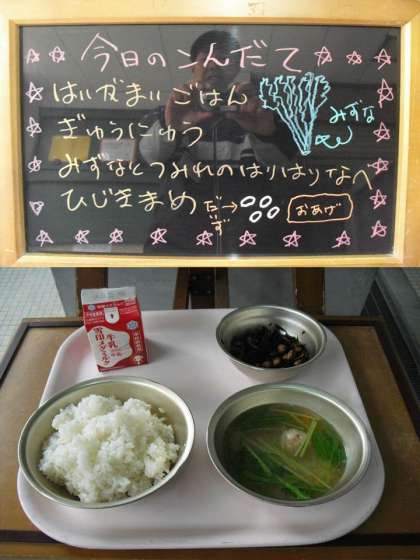 今日のこんだて
はいがまい ごはん
ぎゅうにゅう
みずな
みずなとつみれのはりはりなべ
ひじきまめ だいず→ おあげ
牛乳
雪印メグミルク